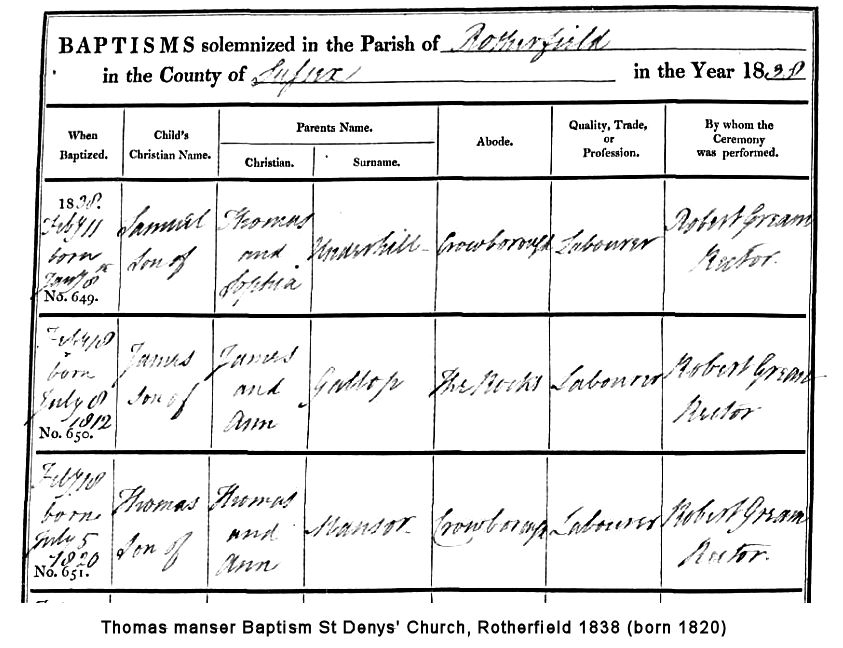 BAPTISMS solemnized in the Parish of Rotherfield
in the County of Sussex in the Year 1838
When Baptized.
Child's Christian Name.
Parents Name.
Christian.
Surname.
Abode.
Quality, Trade, or Profession.
By whom the Ceremony was performed.
1838.
Feby 11
born
Jany 8th
No. 649.
Samuel
Son of
Thomas
and
Sophia
Underhill
Crowborough
Labourer
Robert Gream
Rector.
Feby 18
born
July 8
1812
No. 650.
James
Son of
James
and
Ann
Gallop
The Rocks
Labourer
Robert Gream
Rector
Feby 18
born
July 5
1820
No. 651.
Thomas
Son of
Thomas
and
Ann
Mansor
Crowborough
Labourer
Robert Gream
Rector.
Thomas manser Baptism St Denys' Church, Rotherfield 1838 (born 1820)